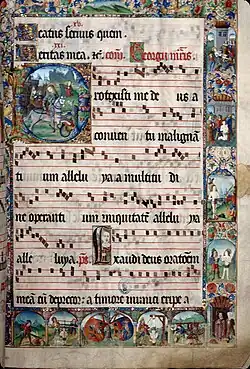 xv.
eatus seruus quem.
xxi.
eritas mea. Georgij
rotexisti me de us a
conuen tu malignā
ti um allelu ya a multitu di
ne operanti um iniquitatē allelu ya
alle luya. ps. Exaudi deus oratōem
meā cū deprecor: a timore inimici eripe a